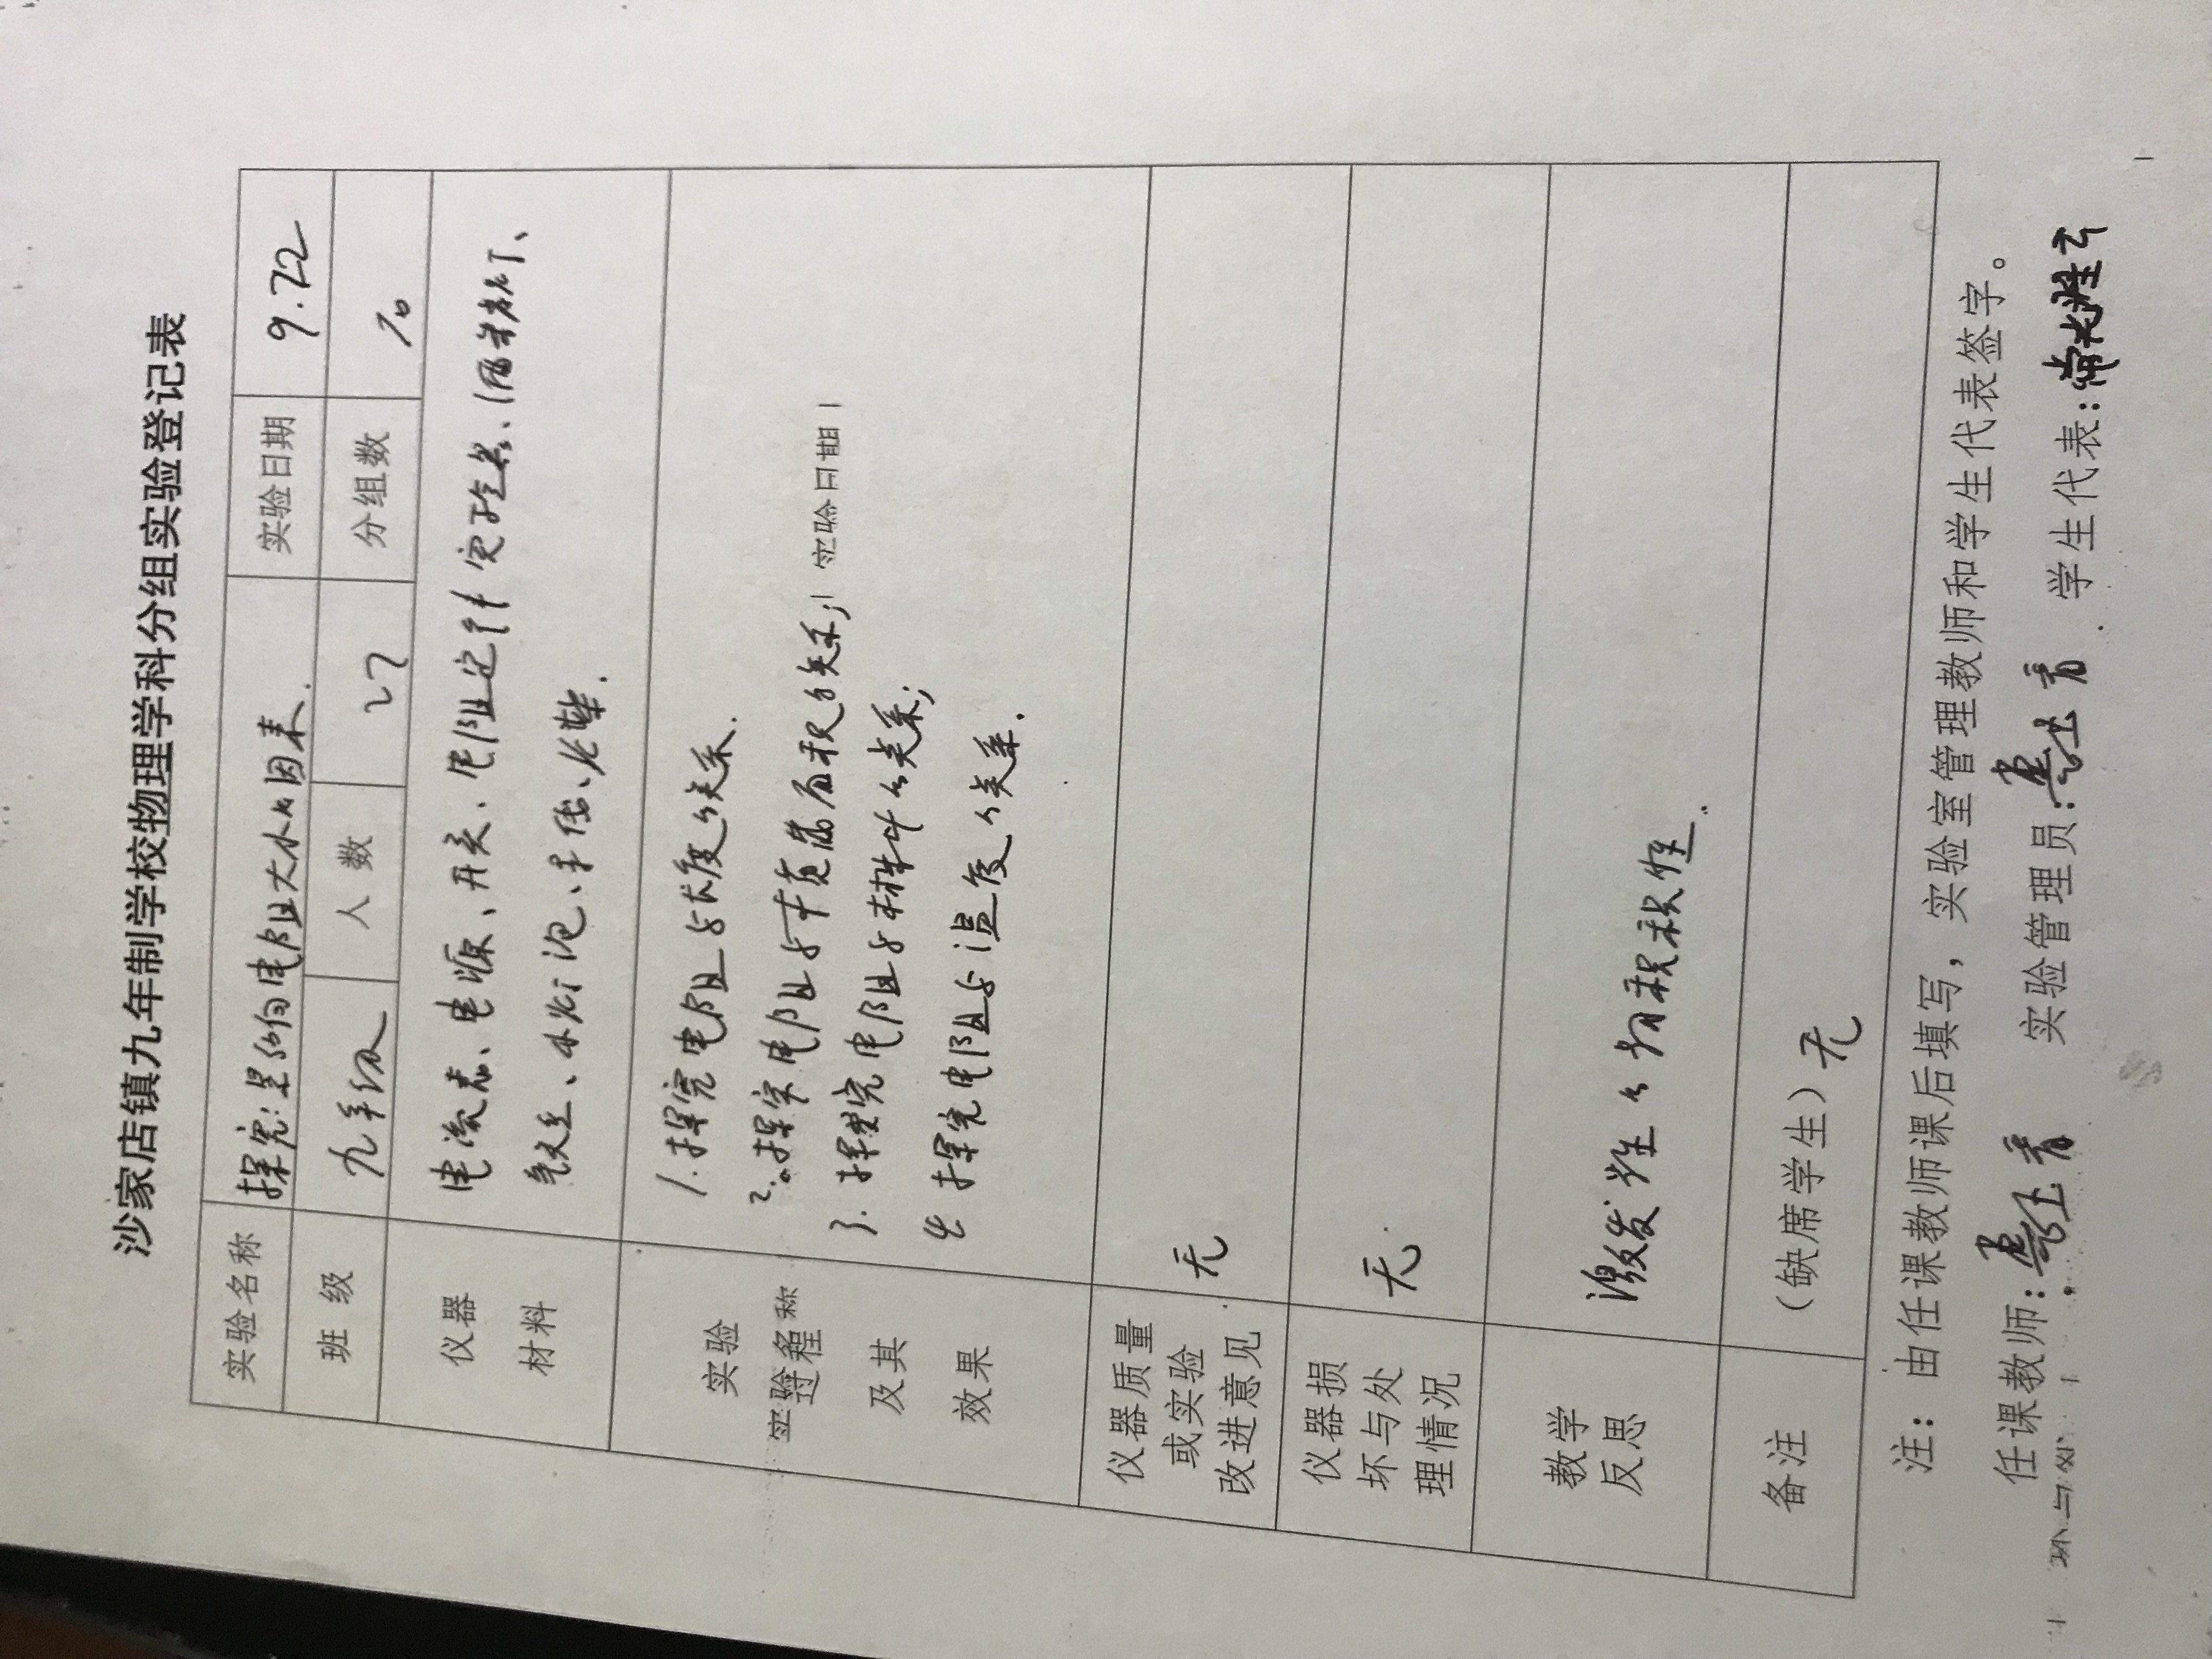 沙家店镇九年制学校物理学科分组实验登记表
实验名称 探究:影响电阻大小的因素. 实验日期 9.22
班 级 九年级 人 数 27 分组数 10
仪器 电流表、电源、开关、电阻定律实验器、酒精灯、
材料 、小灯泡、导线、火柴.
实验 1.探究电阻与长度的关系.
过程 2.探究电阻与横截面积的关系;
实验名称 实验日期
及其 3.探究电阻与材料的关系;
效果 4 探究电阻与温度的关系.
仪器质量
或实验 无
改进意见
仪器损
坏与处 无.
理情况
教学
反思 激发学生的积极性.
备注 (缺席学生)无
注:由任课教师课后填写,实验室管理教师和学生代表签字。
任课教师: 实验管理员: 学生代表:
坏与处